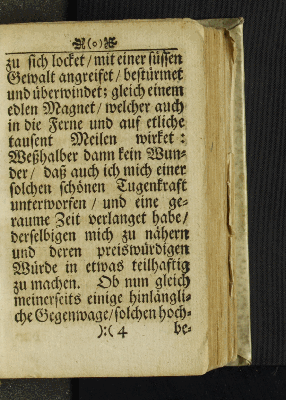 (o)
zu sich locket / mit einer süssen
Gewalt angreifet / bestürmet
und überwindet; gleich einem
edlen Magnet / welcher auch
in die Ferne und auf etliche
tausent Meilen wirket:
Weßhalber dann kein Wun-
der / daß auch ich mich einer
solchen schönen Tugenkraft
unterworfen / und eine ge-
raume Zeit verlanget habe /
derselbigen mich zu nähern
und deren preiswürdigen
Würde in etwas teilhaftig
zu machen. Ob nun gleich
meinerseits einige hinlängli-
che Gegenwage / solchen hoch-
):( 4 be-